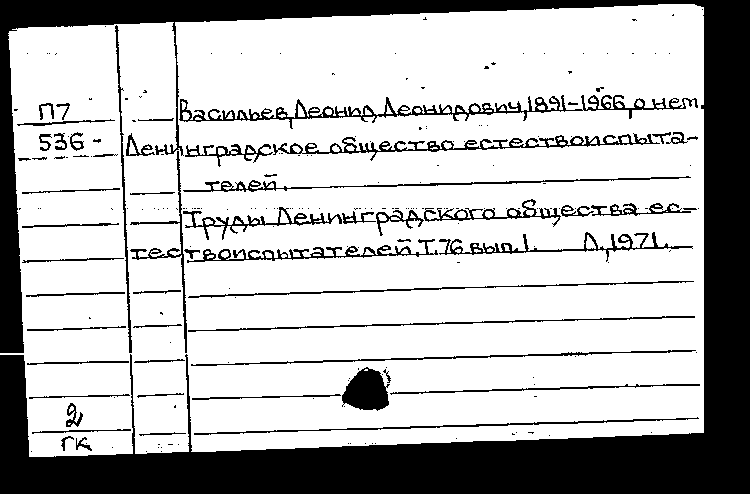 П7 Васильев, Леонид Леонидович, 1891-1966, о нем.
536- Ленинградское общество естествоиспыта-
телей.
Труды Ленинградского общества ес-
тествоиспытателей, Т.76 вып.1. Л., 1971.
2
ГК